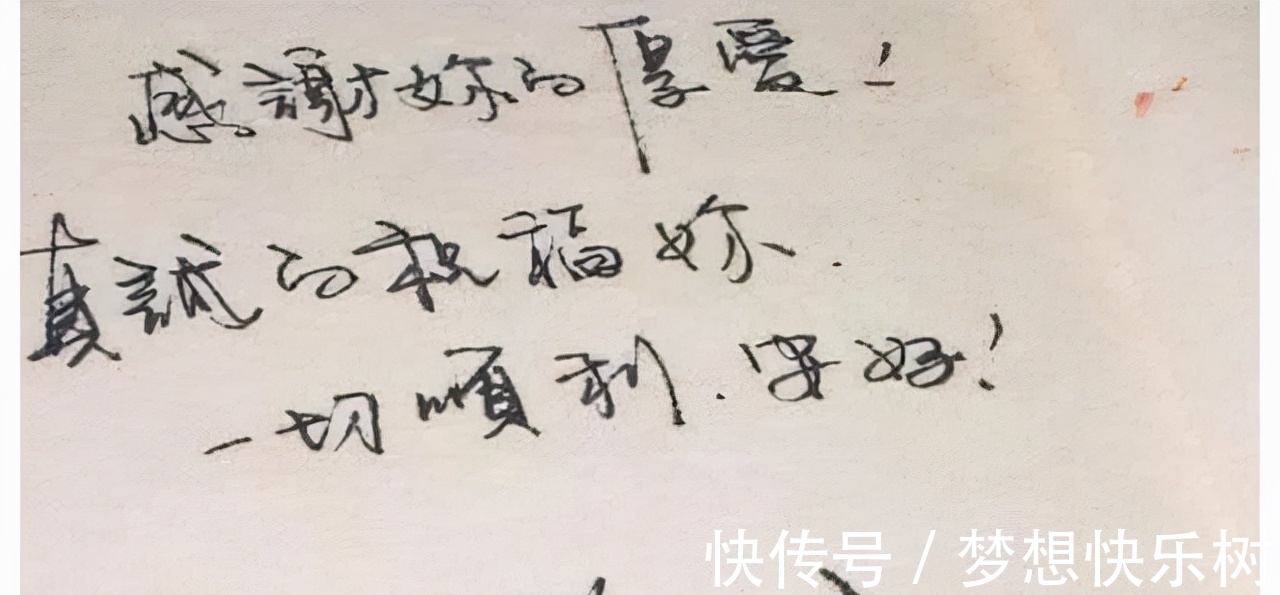 感謝妳的厚愛！
真誠的祝福妳.
一切順利.安好！
快传号／梦想快乐树